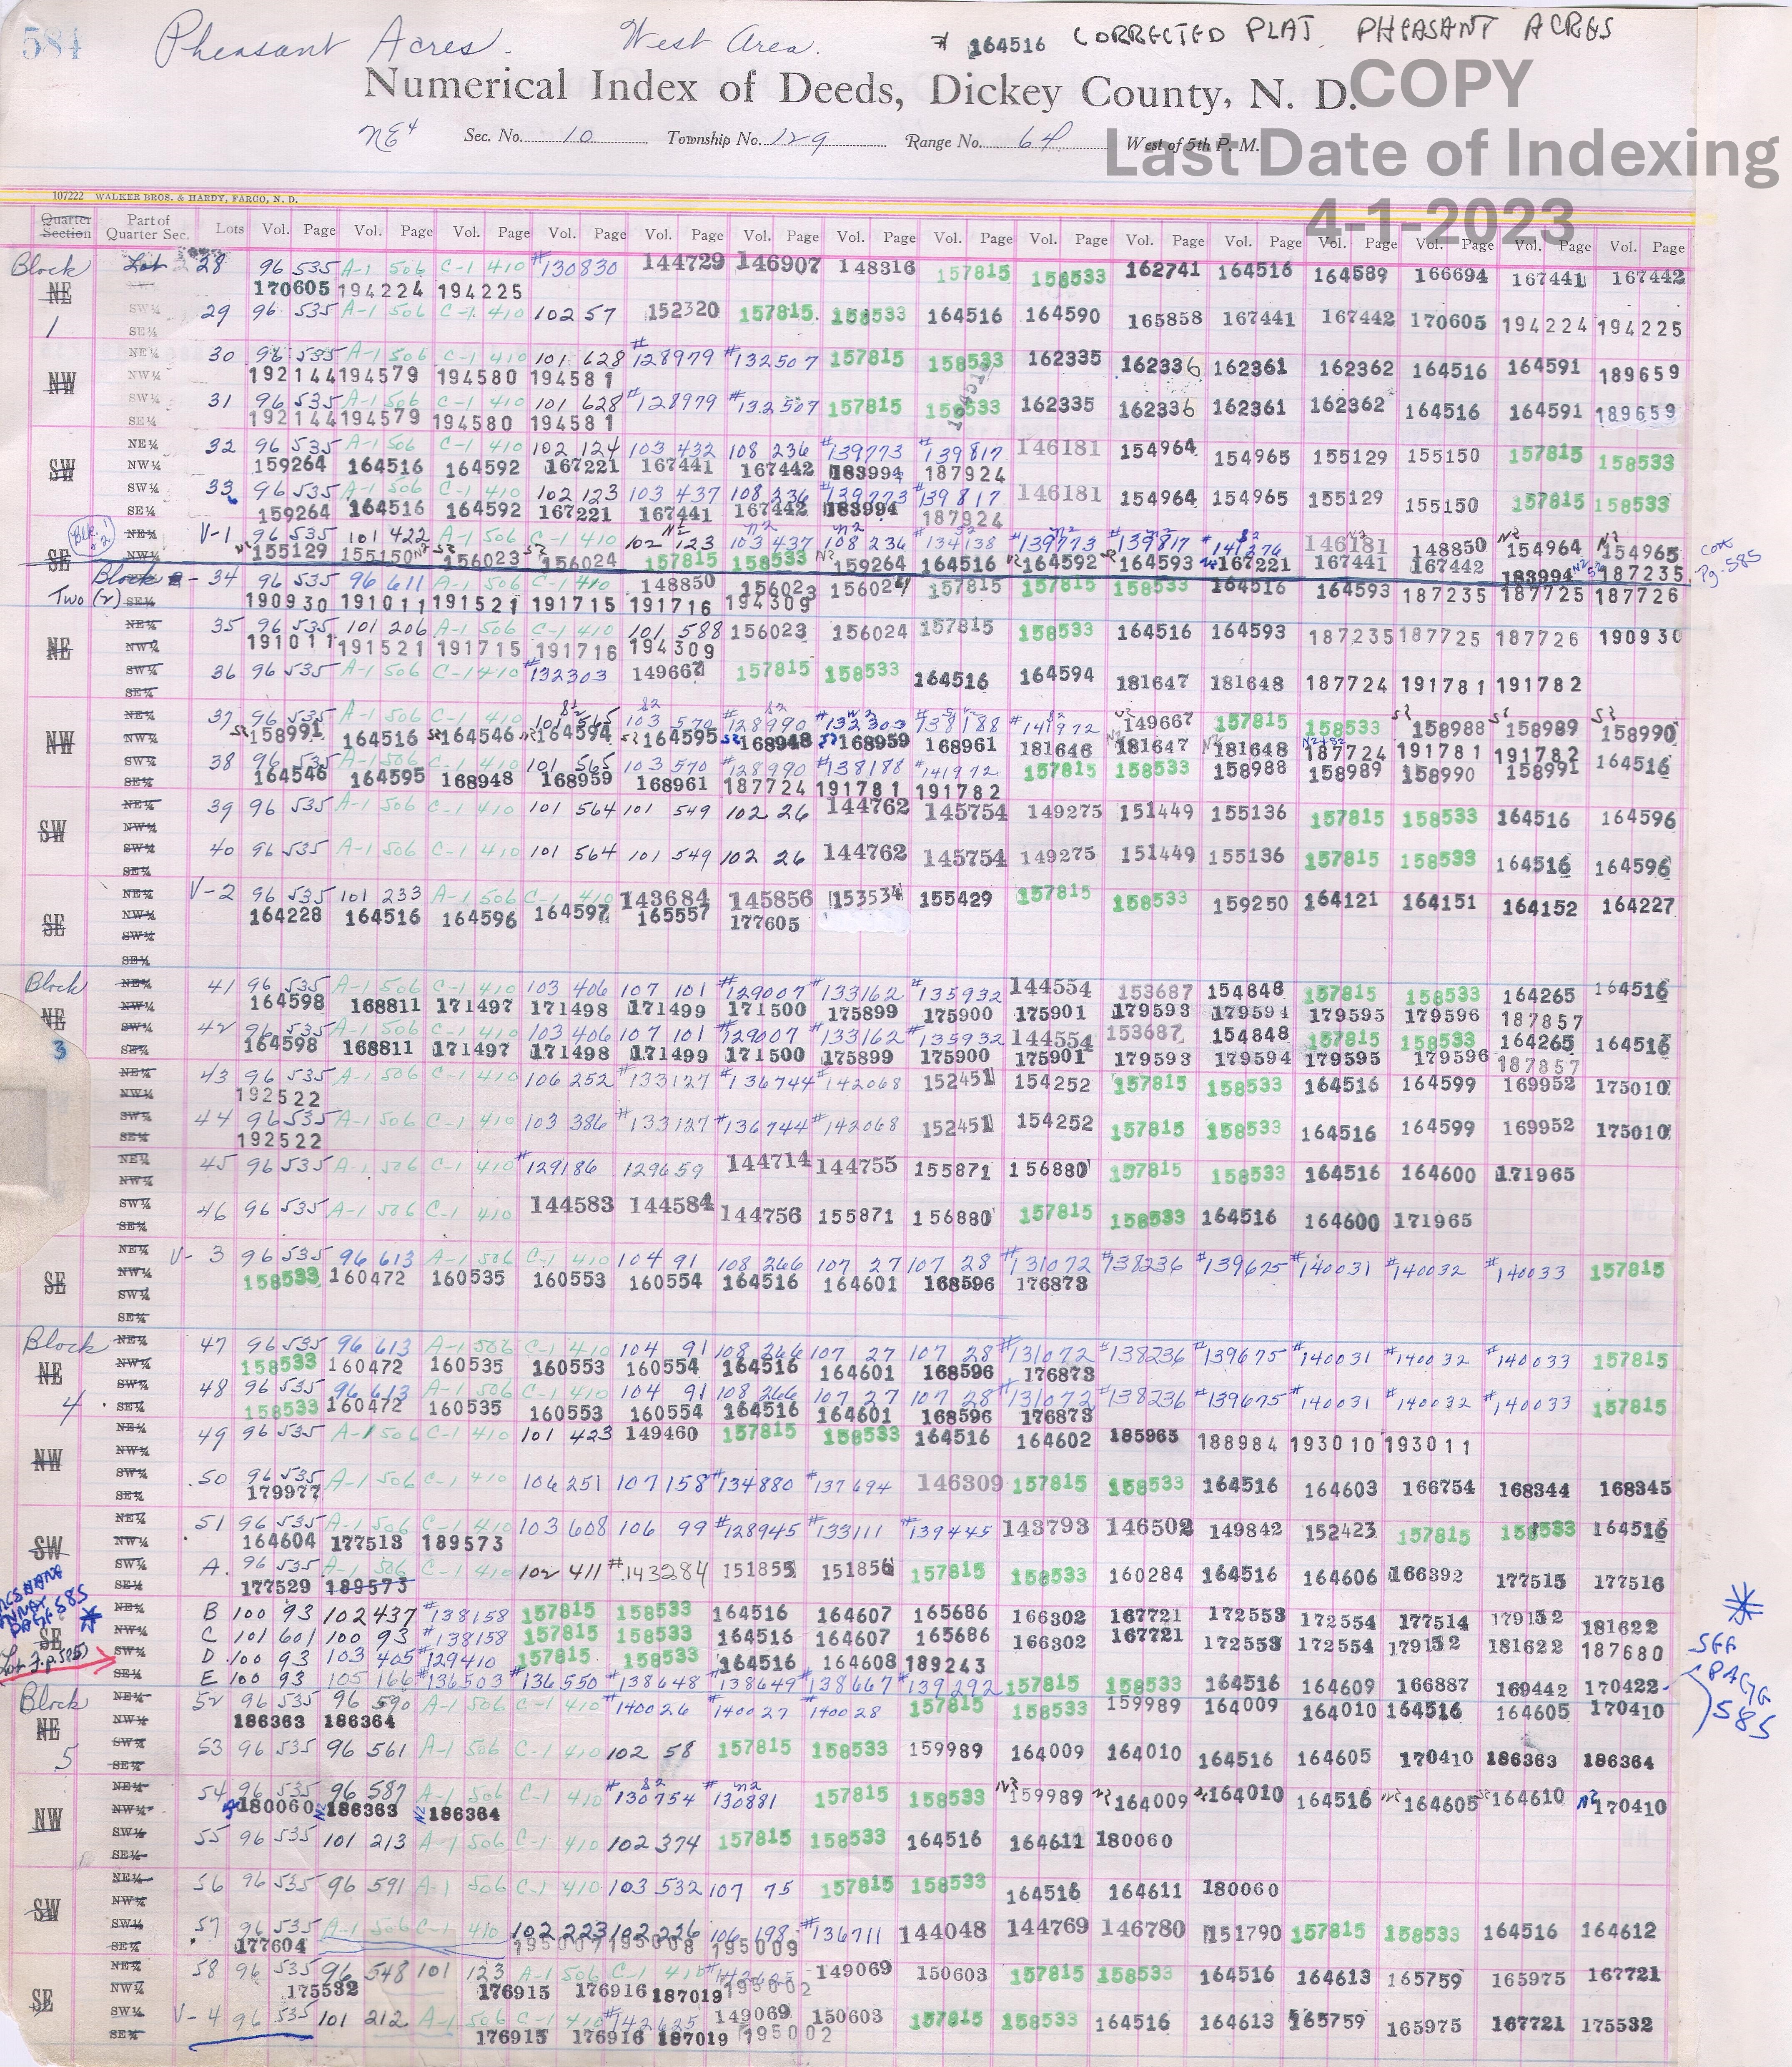 584 Pheasant Acres. West Area. # 164516 CORRECTED PLAT PHEASANT ACRES
Numerical Index of Deeds, Dickey County, N. D.
COPY
NE4 Sec. No. 10 Township No. 129 Range No. 64 West of 5th P. M.
Last Date of Indexing
4-1-2023
107222 WALKER BROS. & HARDY, FARGO, N. D.
Quarter Section Part of Quarter Sec. Lots Vol. Page Vol. Page Vol. Page Vol. Page Vol. Page Vol. Page Vol. Page Vol. Page Vol. Page Vol. Page Vol. Page Vol. Page Vol. Page Vol. Page Vol. Page
Block Lot 28 96 535 A-1 506 C-1 410 #130830 144729 146907 148316 157815 158533 162741 164516 164589 166694 167441 167442
NE 170605 194224 194225
1 SW¼ 29 96 535 A-1 506 C-1 410 102 57 152320 157815 158533 164516 164590 165858 167441 167442 170605 194224 194225
SE¼
NE¼ 30 96 535 A-1 506 C-1 410 101 628 #128979 #132507 157815 158533 162335 162336 162361 162362 164516 164591 189659
NW NW¼ 192144 194579 194580 194581
SW¼ 31 96 535 A-1 506 C-1 410 101 628 #128979 #132507 157815 158533 162335 162336 162361 162362 164516 164591 189659
SE¼ 192144 194579 194580 194581
NE¼ 32 96 535 A-1 506 C-1 410 102 124 103 432 108 236 #139773 #139817 146181 154964 154965 155129 155150 157815 158533
SW NW¼ 159264 164516 164592 167221 167441 167442 183994 187924
SW¼ 33 96 535 A-1 506 C-1 410 102 123 103 437 108 236 #139773 #139817 146181 154964 154965 155129 155150 157815 158533
SE¼ 159264 164516 164592 167221 167441 167442 183994 187924
NE¼ V-1 96 535 101 422 A-1 506 C-1 410 102 123 103 437 108 236 #134138 #139773 #139817 #141276 146181 148850 154964 154965
SE NW¼ 155129 155150 156023 156024 157815 158533 159264 164516 164592 164593 167221 167441 167442 183994 187235 cont Pg. 585
Block 34 96 535 96 611 A-1 506 C-1 410 148850 156023 156024 157815 157815 158533 164516 164593 187235 187725 187726
Two (2) SE¼ 190930 191011 191521 191715 191716 194309
NE¼ 35 96 535 101 206 A-1 506 C-1 410 101 588 156023 156024 157815 158533 164516 164593 187235 187725 187726 190930
NE NW¼ 191011 191521 191715 191716 194309
SW¼ 36 96 535 A-1 506 C-1 410 #132303 149667 157815 158533 164516 164594 181647 181648 187724 191781 191782
SE¼
NE¼ 37 96 535 A-1 506 C-1 410 101 565 103 570 #128990 #132303 #138188 #141972 149667 157815 158533 158988 158989 158990
NW NW¼ 158991 164516 164546 164594 164595 168948 168959 168961 181646 181647 181648 187724 191781 191782
SW¼ 38 96 535 A-1 506 C-1 410 101 565 103 570 #128990 #138188 #141972 157815 158533 158988 158989 158990 158991 164516
SE¼ 164546 164595 168948 168959 168961 187724 191781 191782
NE¼ 39 96 535 A-1 506 C-1 410 101 564 101 549 102 26 144762 145754 149275 151449 155136 157815 158533 164516 164596
SW NW¼
SW¼ 40 96 535 A-1 506 C-1 410 101 564 101 549 102 26 144762 145754 149275 151449 155136 157815 158533 164516 164596
SE¼
NE¼ V-2 96 535 101 233 A-1 506 C-1 410 143684 145856 153534 155429 157815 158533 159250 164121 164151 164152 164227
SE NW¼ 164228 164516 164596 164597 165557 177605
SW¼
SE¼
Block NE¼ 41 96 535 A-1 506 C-1 410 103 406 107 101 #129007 #133162 #135932 144554 153687 154848 157815 158533 164265 164516
NE NW¼ 164598 168811 171497 171498 171499 171500 175899 175900 175901 179593 179594 179595 179596 187857
3 SW¼ 42 96 535 A-1 506 C-1 410 103 406 107 101 #129007 #133162 #135932 144554 153687 154848 157815 158533 164265 164516
SE¼ 164598 168811 171497 171498 171499 171500 175899 175900 175901 179593 179594 179595 179596 187857
NE¼ 43 96 535 A-1 506 C-1 410 106 252 #133127 #136744 #142068 152451 154252 157815 158533 164516 164599 169952 175010
NW¼ 192522
SW¼ 44 96 535 A-1 506 C-1 410 103 386 #133127 #136744 #142068 152451 154252 157815 158533 164516 164599 169952 175010
SE¼ 192522
NE¼ 45 96 535 A-1 506 C-1 410 #129186 129659 144714 144755 155871 156880 157815 158533 164516 164600 171965
NW¼
SW¼ 46 96 535 A-1 506 C-1 410 144583 144584 144756 155871 156880 157815 158533 164516 164600 171965
SE¼
NE¼ V-3 96 535 96 613 A-1 506 C-1 410 104 91 108 266 107 27 107 28 #131072 #138236 #139675 #140031 #140032 #140033 157815
SE NW¼ 158533 160472 160535 160553 160554 164516 164601 168596 176873
SW¼
SE¼
Block NE¼ 47 96 535 96 613 A-1 506 C-1 410 104 91 108 266 107 27 107 28 #131072 #138236 #139675 #140031 #140032 #140033 157815
NE NW¼ 158533 160472 160535 160553 160554 164516 164601 168596 176873
4 SW¼ 48 96 535 96 613 A-1 506 C-1 410 104 91 108 266 107 27 107 28 #131072 #138236 #139675 #140031 #140032 #140033 157815
SE¼ 158533 160472 160535 160553 160554 164516 164601 168596 176873
NE¼ 49 96 535 A-1 506 C-1 410 101 423 149460 157815 158533 164516 164602 185965 188984 193010 193011
NW NW¼
SW¼ 50 96 535 A-1 506 C-1 410 106 251 107 158 #134880 #137694 146309 157815 158533 164516 164603 166754 168344 168345
SE¼ 179977
NE¼ 51 96 535 A-1 506 C-1 410 103 608 106 99 #128945 #133111 #139445 143793 146502 149842 152423 157815 158533 164516
SW NW¼ 164604 177513 189573
SW¼ A. 96 535 A-1 506 C-1 410 102 411 #143284 151855 151856 157815 158533 160284 164516 164606 166392 177515 177516
SE¼ 177529 189573
NE¼ B 100 93 102 437 #138158 157815 158533 164516 164607 165686 166302 167721 172553 172554 177514 179132 181622
SE NW¼ C 101 601 100 93 #138158 157815 158533 164516 164607 165686 166302 167721 172553 172554 179132 181622 187680
SW¼ D 100 93 103 405 #129410 157815 158533 164516 164608 189243
SE¼ E 100 93 105 166 #136503 #136550 #138648 #138649 #138667 #139292 157815 158533 164516 164609 166887 169442 170422
SEE PAGE 585
Block NE¼ 52 96 535 96 590 A-1 506 C-1 410 #140026 #140027 #140028 157815 158533 159989 164009 164010 164516 164605 170410
NE NW¼ 186363 186364
5 SW¼ 53 96 535 96 561 A-1 506 C-1 410 102 58 157815 158533 159989 164009 164010 164516 164605 170410 186363 186364
SE¼
NE¼ 54 96 535 96 587 A-1 506 C-1 410 #130754 #130881 157815 158533 159989 164009 164010 164516 164605 164610 170410
NW NW¼ 180060 186363 186364
SW¼ 55 96 535 101 213 A-1 506 C-1 410 102 374 157815 158533 164516 164611 180060
SE¼
NE¼ 56 96 535 96 591 A-1 506 C-1 410 103 532 107 75 157815 158533 164516 164611 180060
SW NW¼
SW¼ 57 96 535 A-1 506 C-1 410 102 223 102 226 106 198 #136711 144048 144769 146780 151790 157815 158533 164516 164612
SE¼ 177604 195007 195008 195009
NE¼ 58 96 535 96 548 101 123 A-1 506 C-1 410 149069 150603 157815 158533 164516 164613 165759 165975 167721
SE NW¼ 175532 176915 176916 187019 195002
SW¼ V-4 96 535 101 212 A-1 506 C-1 410 #142625 149069 150603 157815 158533 164516 164613 165759 165975 167721 175532
SE¼ 176915 176916 187019 195002